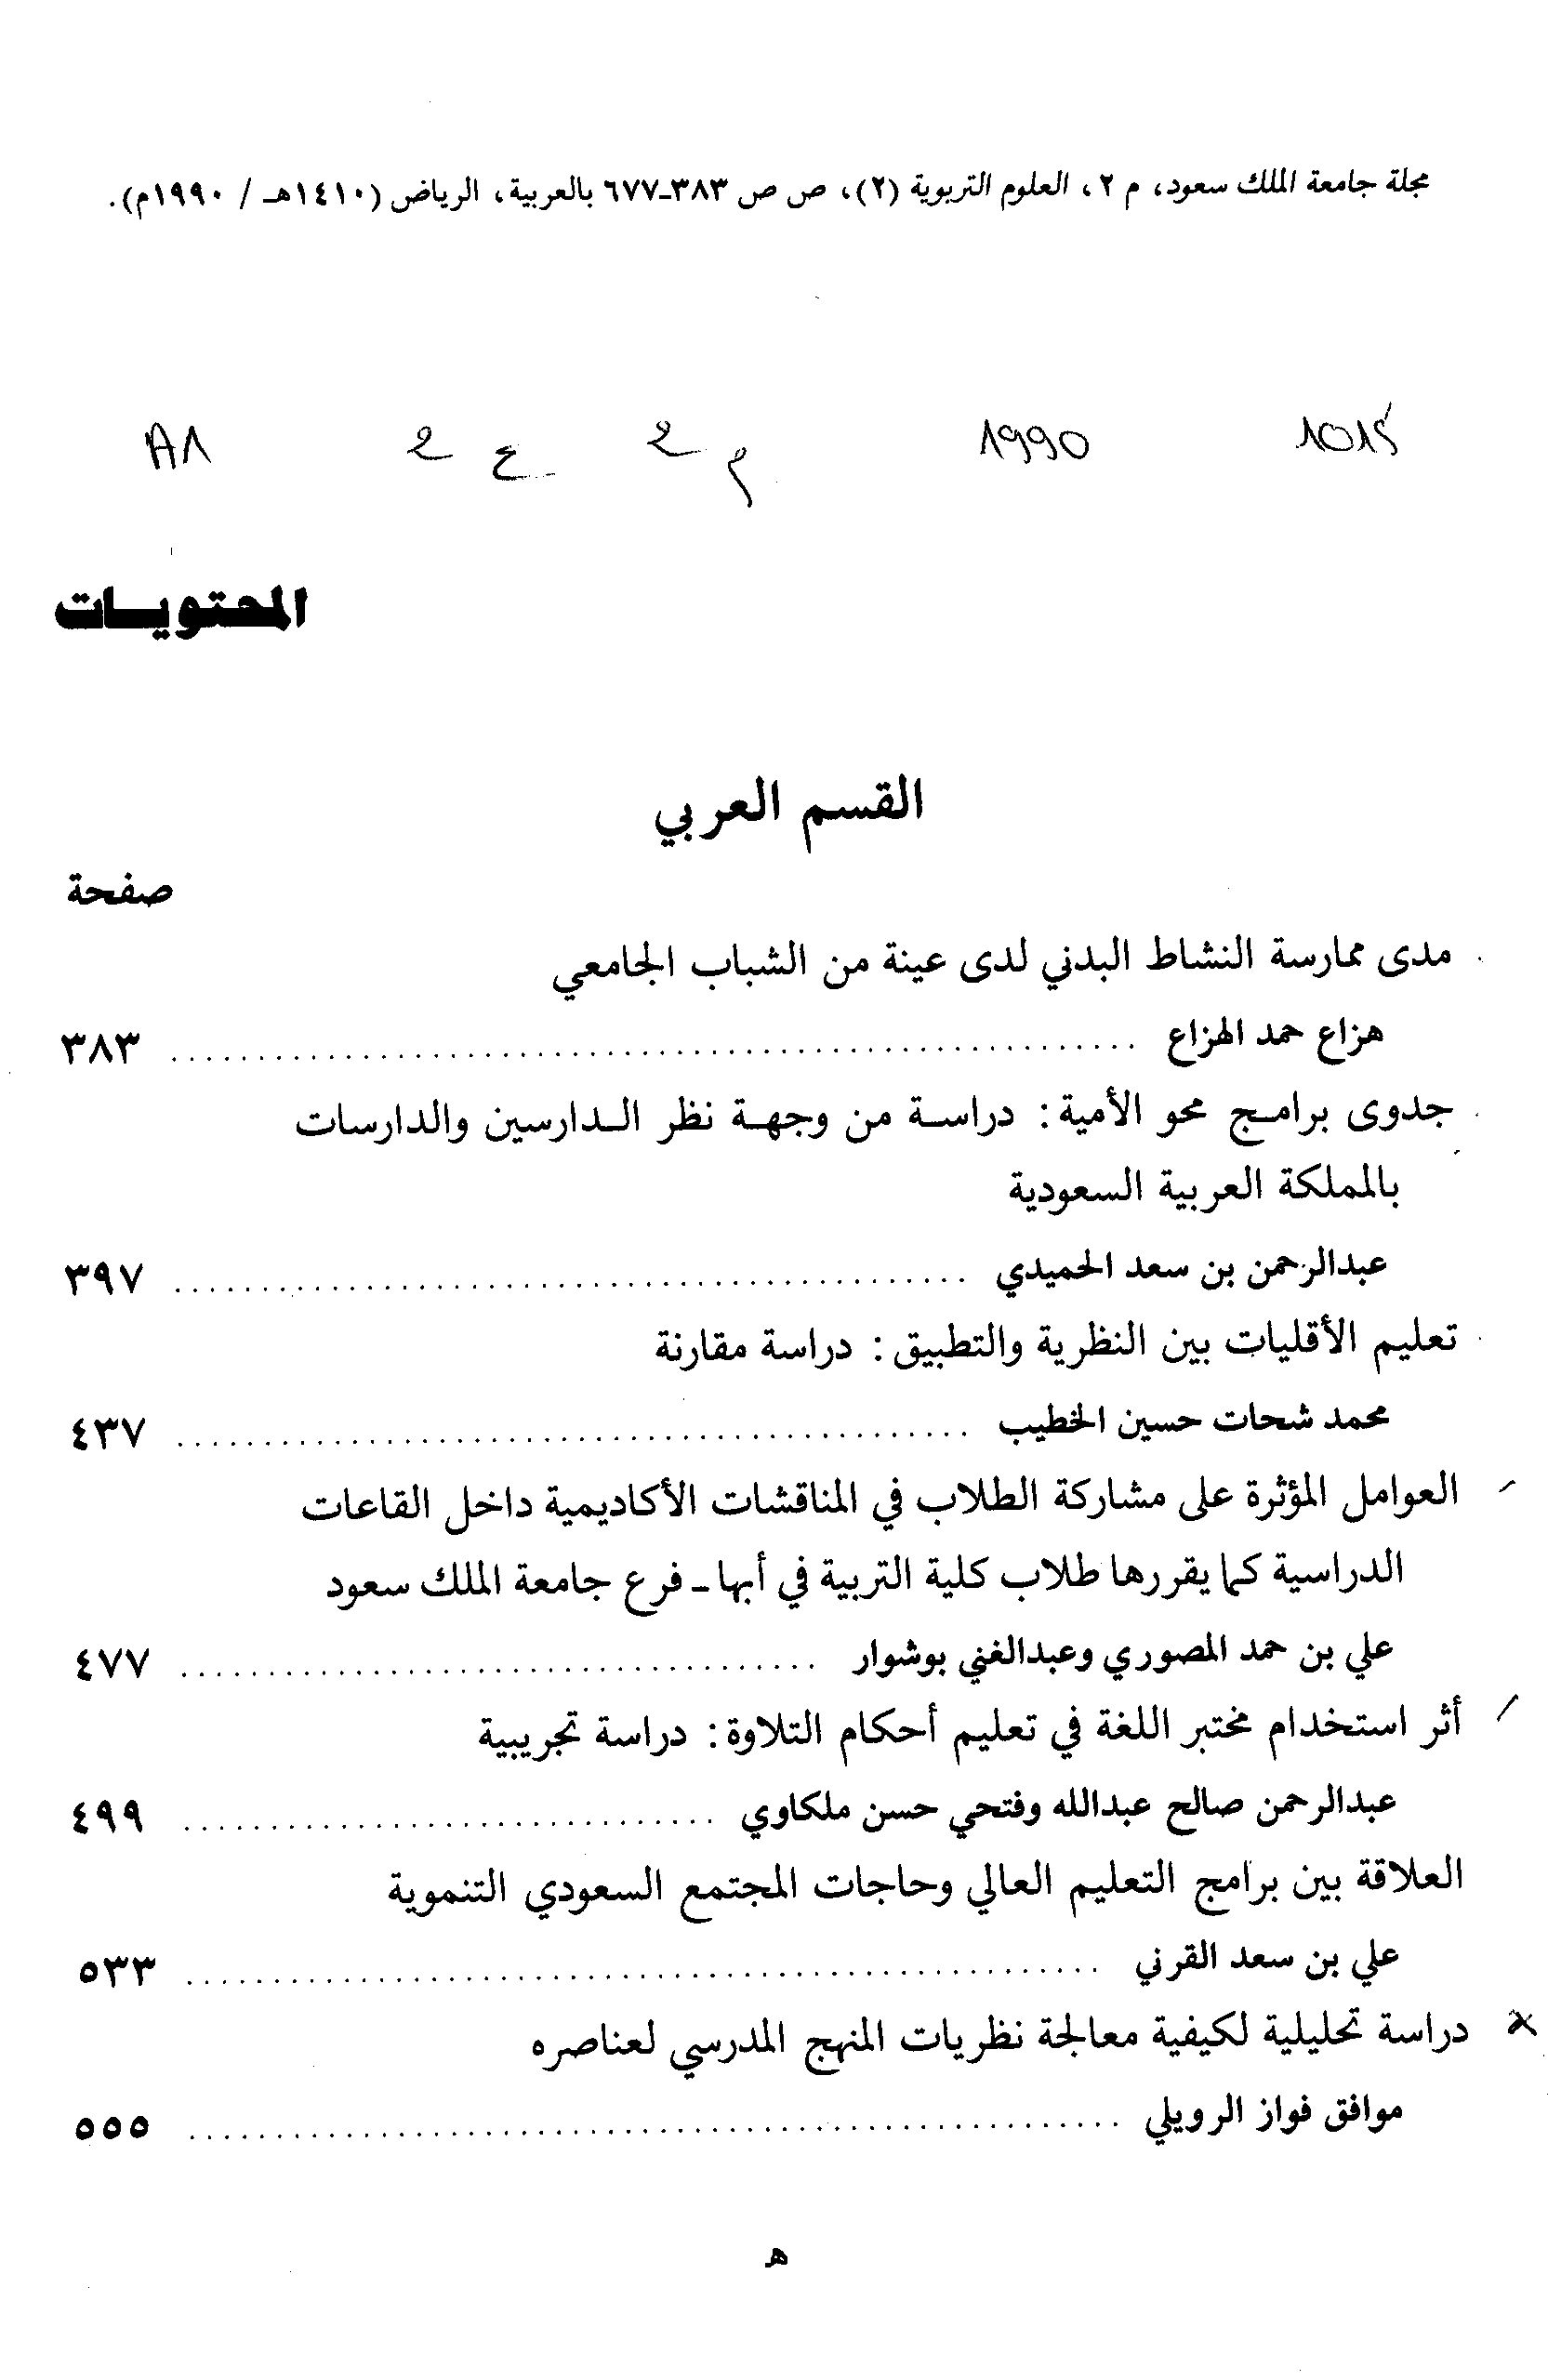 مجلة جامعة الملك سعود، م ٢، العلوم التربوية (٢)، ص ص ٣٨٣-٦٧٧ بالعربية، الرياض (١٤١٠هـ / ١٩٩٠م).
1990 م 2 ع 2
المحتويــات
القسم العربي
صفحة
مدى ممارسة النشاط البدني لدى عينة من الشباب الجامعي
هزاع حمد الهزاع ........................................................ ٣٨٣
جدوى برامـج محو الأمية: دراسـة من وجهـة نظر الـدارسين والدارسات
بالمملكة العربية السعودية
عبدالرحمن بن سعد الحميدي .............................................. ٣٩٧
تعليم الأقليات بين النظرية والتطبيق: دراسة مقارنة
محمد شحات حسين الخطيب .............................................. ٤٣٧
العوامل المؤثرة على مشاركة الطلاب في المناقشات الأكاديمية داخل القاعات
الدراسية كما يقررها طلاب كلية التربية في أبها ـ فرع جامعة الملك سعود
علي بن حمد المصوري وعبدالغني بوشوار ..................................... ٤٧٧
أثر استخدام مختبر اللغة في تعليم أحكام التلاوة: دراسة تجريبية
عبدالرحمن صالح عبدالله وفتحي حسن ملكاوي ............................... ٤٩٩
العلاقة بين برامج التعليم العالي وحاجات المجتمع السعودي التنموية
علي بن سعد القرني ..................................................... ٥٣٣
دراسة تحليلية لكيفية معالجة نظريات المنهج المدرسي لعناصره
موافق فواز الرويلي ...................................................... ٥٥٥
هـ